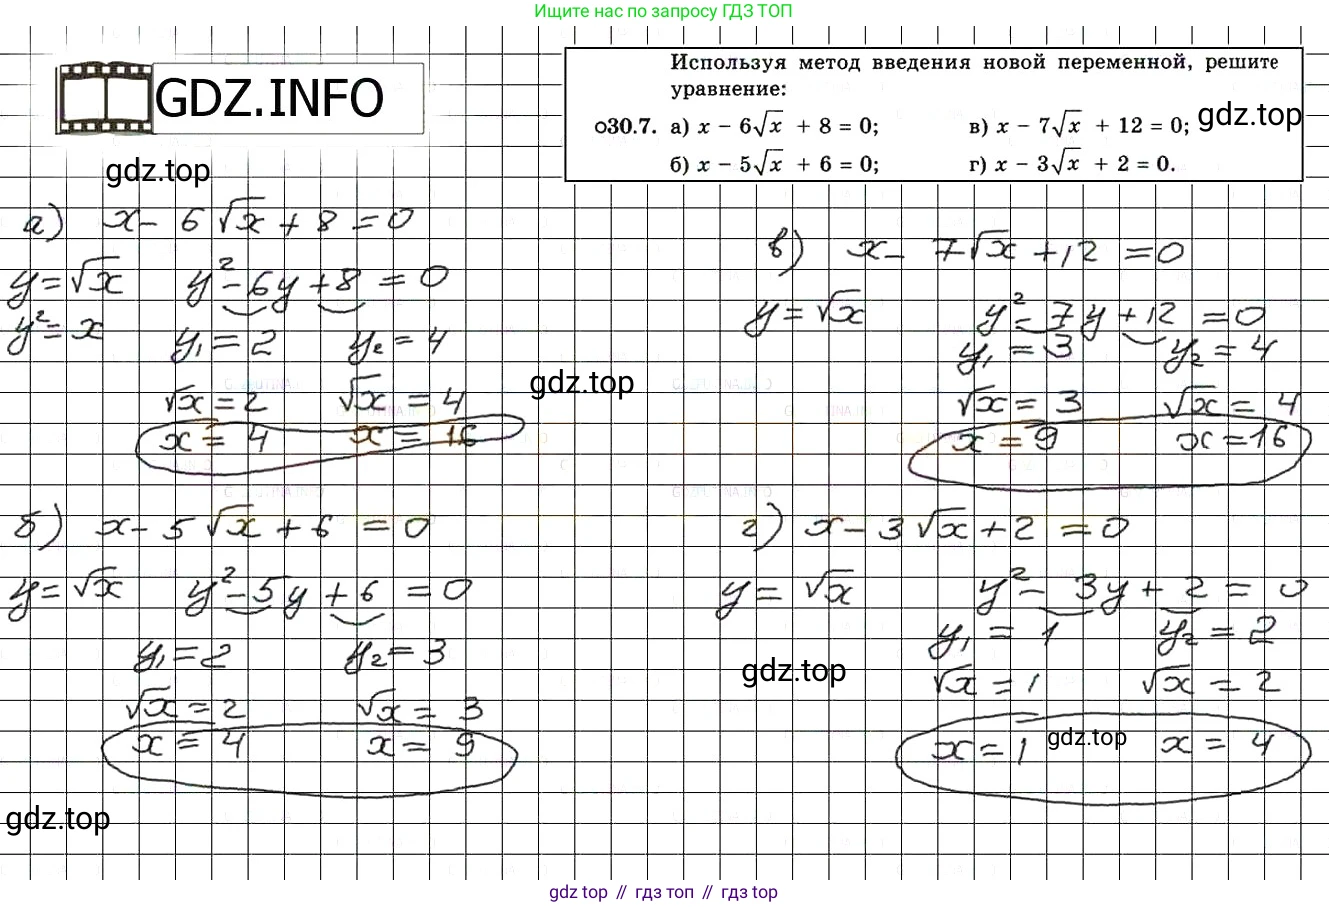 Ищите нас по запросу ГДЗ ТОП
GDZ.INFO
Используя метод введения новой переменной, решите
уравнение:
о30.7. а) x − 6√x + 8 = 0; в) x − 7√x + 12 = 0;
б) x − 5√x + 6 = 0; г) x − 3√x + 2 = 0.
gdz.top
gdz.top
а) x − 6√x + 8 = 0
y = √x y² − 6y + 8 = 0
y² = x y₁ = 2 y₂ = 4
√x = 2 √x = 4
x = 4 x = 16
gdz.top
в) x − 7√x + 12 = 0
y = √x y² − 7y + 12 = 0
y₁ = 3 y₂ = 4
√x = 3 √x = 4
x = 9 x = 16
б) x − 5√x + 6 = 0
y = √x y² − 5y + 6 = 0
y₁ = 2 y₂ = 3
√x = 2 √x = 3
x = 4 x = 9
г) x − 3√x + 2 = 0
y = √x y² − 3y + 2 = 0
y₁ = 1 y₂ = 2
gdz.top
√x = 1 √x = 2
x = 1 gdz.top x = 4
gdz.top
gdz top // гдз топ // gdz top